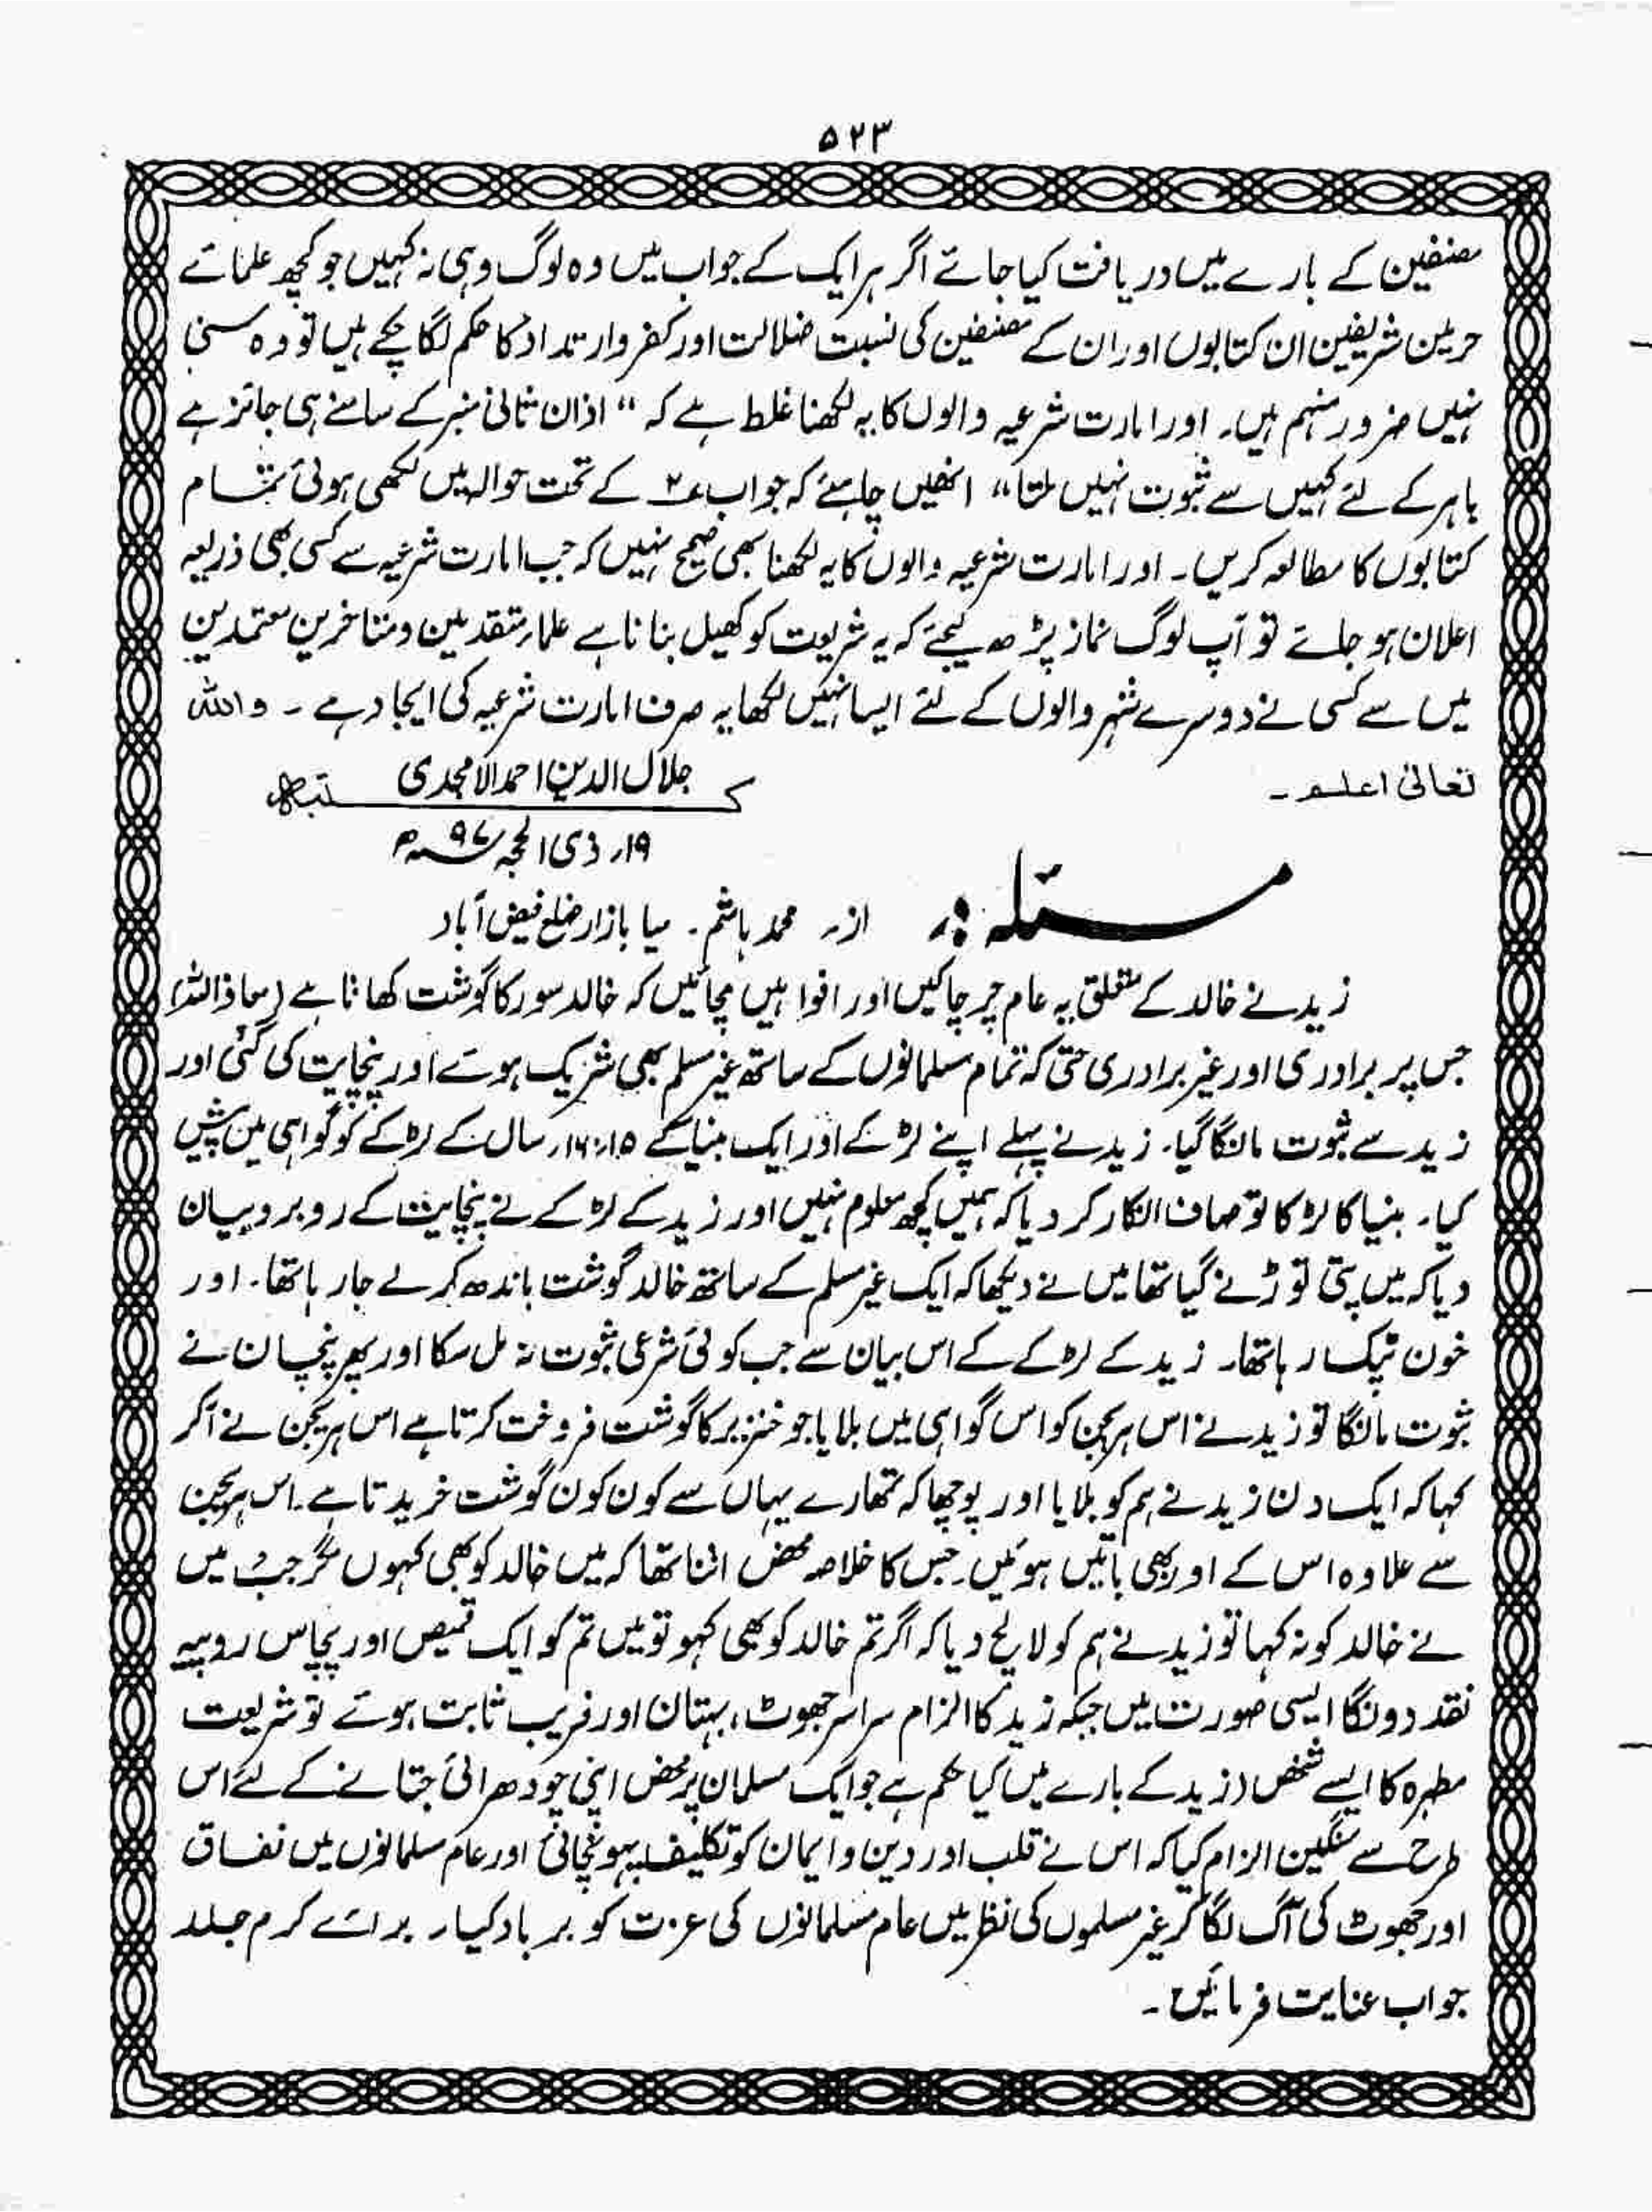 ۵۲۳
مصنفین کے بارے میں دریافت کیا جائے اگر ہر ایک کے جواب میں وہ لوگ وہی نہ کہیں جو کچھ علمائے
حرمین شریفین ان کتابوں اور ان کے مصنفین کی نسبت ضلالت اور کفر وارتداد کا حکم لگا چکے ہیں تو وہ سنی
نہیں ضرور متہم ہیں۔ اور امارت شرعیہ والوں کا یہ لکھنا غلط ہے کہ “ اذان ثانی منبر کے سامنے ہی جائز ہے
باہر کے لئے کہیں سے ثبوت نہیں ملتا“ انھیں چاہئے کہ جواب ۲؎ کے تحت حوالہ میں لکھی ہوئی تمام
کتابوں کا مطالعہ کریں۔ اور امارت شرعیہ والوں کا یہ لکھنا بھی صحیح نہیں کہ جب امارت شرعیہ سے کسی بھی ذریعہ
اعلان ہو جائے تو آپ لوگ نماز پڑھ لیجئے کہ یہ شریعت کو کھیل بنانا ہے علمار متقدمین ومتاخرین معتمدین
میں سے کسی نے دوسرے شہر والوں کے لئے ایسا نہیں لکھا یہ صرف امارت شرعیہ کی ایجاد ہے ۔ واللہ
تعالیٰ اعلم ۔
کتبہ جلال الدین احمد الامجدی
۱۹؍ ذی الحجہ ۹۷ھ
مسئلہ :۔ از۔ محمد ہاشم۔ میا بازار ضلع فیض آباد
زید نے خالد کے متعلق یہ عام چرچا کیں اور افواہیں مچائیں کہ خالد سور کا گوشت کھاتا ہے (معاذ اللہ)
جس پر برادری اور غیر برادری حتی کہ تمام مسلمانوں کے ساتھ غیر مسلم بھی شریک ہوئے اور پنچایت کی گئی اور
زید سے ثبوت مانگا گیا۔ زید نے پہلے اپنے لڑکے اور ایک بنیا کے ۱۵؍۱۶؍ سال کے لڑکے کو گواہی میں پیش
کیا۔ بنیا کا لڑکا تو صاف انکار کر دیا کہ ہمیں کچھ معلوم نہیں اور زید کے لڑکے نے پنچایت کے روبرو بیان
دیا کہ میں پتی توڑنے گیا تھا میں نے دیکھا کہ ایک غیر مسلم کے ساتھ خالد گوشت باندھ کر لے جا رہا تھا۔ اور
خون ٹپک رہا تھا۔ زید کے لڑکے کے اس بیان سے جب کوئی شرعی ثبوت نہ مل سکا اور پھر پنچان نے
ثبوت مانگا تو زید نے اس ہریجن کو اس گواہی میں بلایا جو خنزیر کا گوشت فروخت کرتا ہے اس ہریجن نے آکر
کہا کہ ایک دن زید نے ہم کو بلایا اور پوچھا کہ تمھارے یہاں سے کون کون گوشت خریدتا ہے۔ اس ہریجن
سے علاوہ اس کے اور بھی باتیں ہوئیں۔ جس کا خلاصہ محض اتنا تھا کہ میں خالد کو بھی کہوں مگر جب میں
نے خالد کو نہ کہا تو زید نے ہم کو لالچ دیا کہ اگر تم خالد کو بھی کہو تو میں تم کو ایک قمیص اور پچاس روپیہ
نقد دونگا ایسی صورت میں جبکہ زید کا الزام سراسر جھوٹ، بہتان اور فریب ثابت ہوئے تو شریعت
مطہرہ کا ایسے شخص (زید کے بارے میں کیا حکم ہے جو ایک مسلمان پر محض اپنی چودھرائی جتانے کے لئے اس
طرح سے سنگین الزام کیا کہ اس نے قلب اور دین و ایمان کو تکلیف پہونچائی اور عام مسلمانوں میں نفاق
اور جھوٹ کی آگ لگا کر غیر مسلموں کی نظر میں عام مسلمانوں کی عزت کو برباد کیا۔ برائے کرم جلد
جواب عنایت فرمائیں ۔